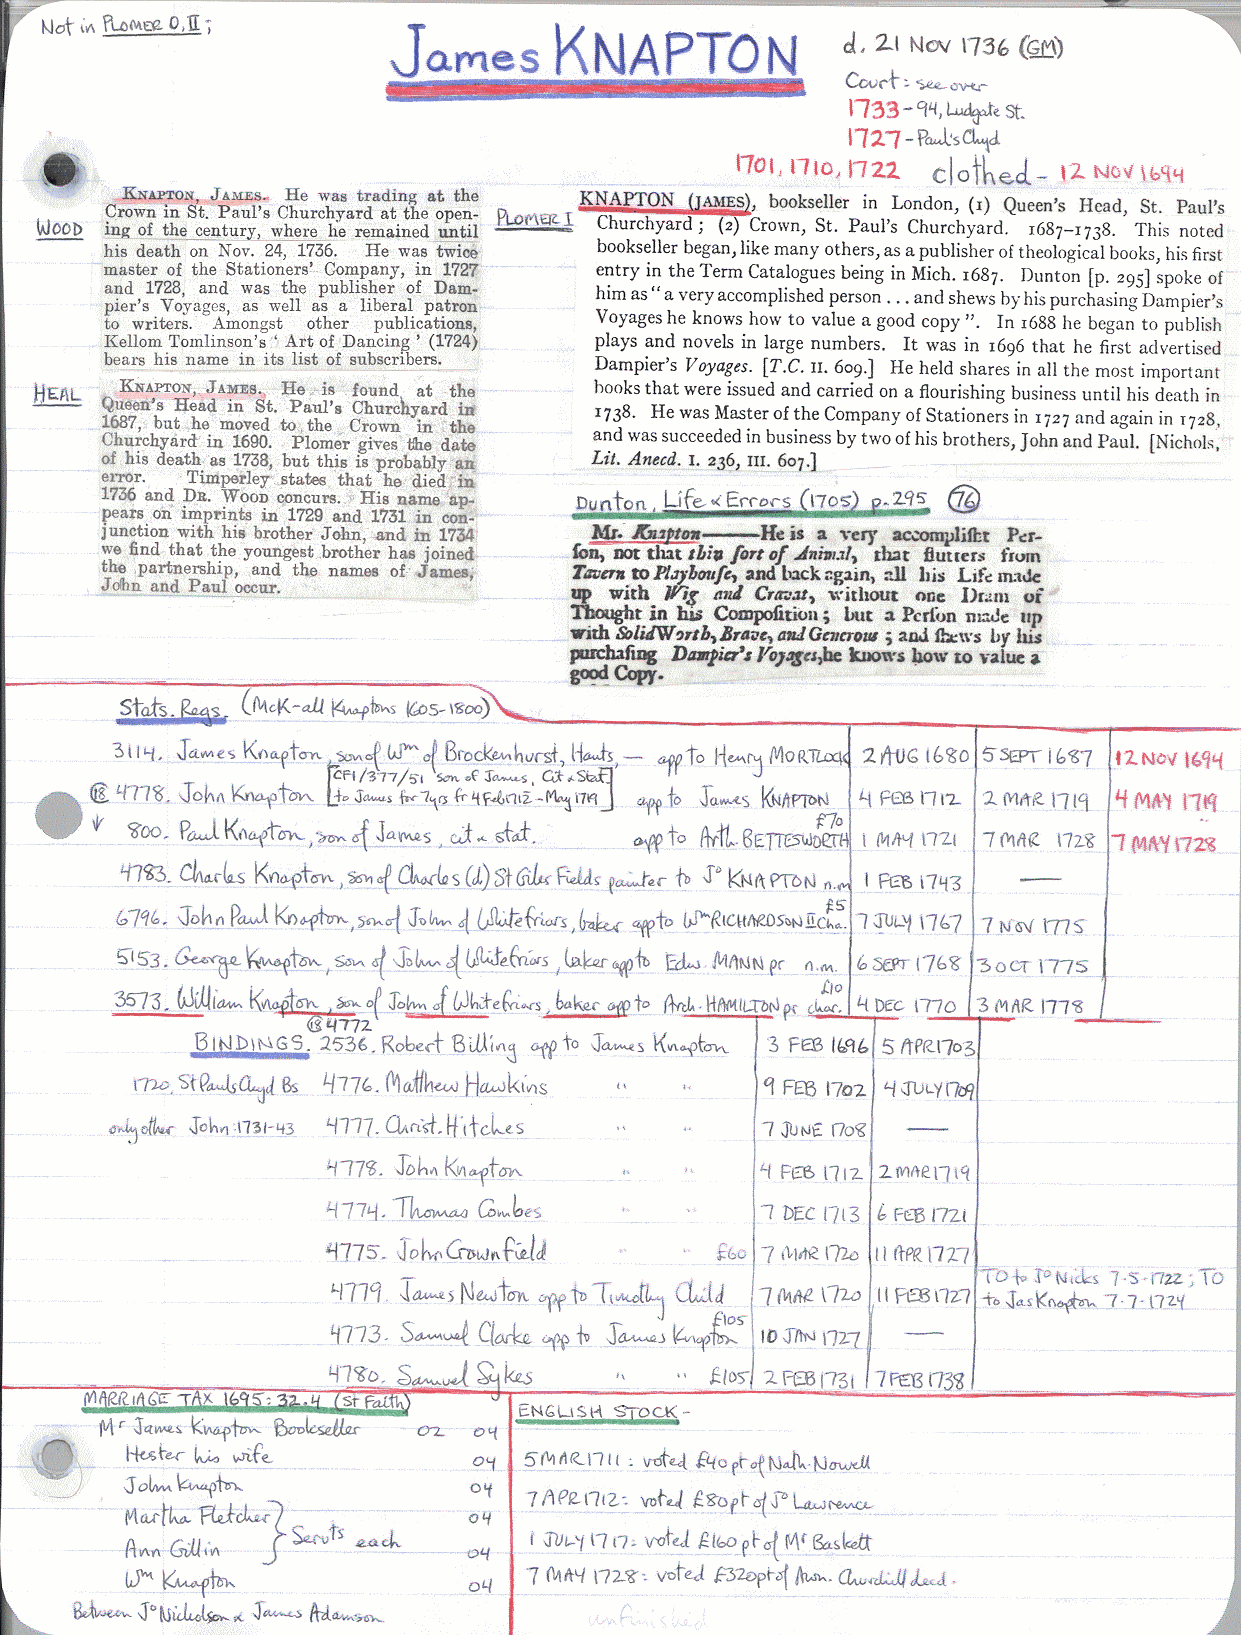 Not in PLOMER O, II;
James KNAPTON
d. 21 NOV 1736 (GM)
Court: see over
1733 - 94, Ludgate St.
1727 - Paul's Chyd
1701, 1710, 1722 clothed - 12 NOV 1694
WOOD
KNAPTON, JAMES. He was trading at the
Crown in St. Paul's Churchyard at the open-
ing of the century, where he remained until
his death on Nov. 24, 1736. He was twice
master of the Stationers' Company, in 1727
and 1728, and was the publisher of Dam-
pier's Voyages, as well as a liberal patron
to writers. Amongst other publications,
Kellom Tomlinson's ' Art of Dancing ' (1724)
bears his name in its list of subscribers.
HEAL
KNAPTON, JAMES. He is found at the
Queen's Head in St. Paul's Churchyard in
1687, but he moved to the Crown in the
Churchyard in 1690. Plomer gives the date
of his death as 1738, but this is probably an
error. Timperley states that he died in
1736 and DR. WOOD concurs. His name ap-
pears on imprints in 1729 and 1731 in con-
junction with his brother John, and in 1734
we find that the youngest brother has joined
the partnership, and the names of James,
John and Paul occur.
PLOMER I
KNAPTON (JAMES), bookseller in London, (1) Queen's Head, St. Paul's
Churchyard ; (2) Crown, St. Paul's Churchyard. 1687-1738. This noted
bookseller began, like many others, as a publisher of theological books, his first
entry in the Term Catalogues being in Mich. 1687. Dunton [p. 295] spoke of
him as " a very accomplished person . . . and shews by his purchasing Dampier's
Voyages he knows how to value a good copy ". In 1688 he began to publish
plays and novels in large numbers. It was in 1696 that he first advertised
Dampier's Voyages. [T.C. II. 609.] He held shares in all the most important
books that were issued and carried on a flourishing business until his death in
1738. He was Master of the Company of Stationers in 1727 and again in 1728,
and was succeeded in business by two of his brothers, John and Paul. [Nichols,
Lit. Anecd. I. 236, III. 607.]
Dunton, Life & Errors (1705) p.295 (76)
Mr. Knapton——He is a very accomplisht Per-
son, not that thin sort of Animal, that flutters from
Tavern to Playhouse, and back again, all his Life made
up with Wig and Cravat, without one Dram of
Thought in his Composition ; but a Person made up
with Solid Worth, Brave, and Generous ; and shews by his
purchasing Dampier's Voyages, he knows how to value a
good Copy.
Stats. Regs. (McK-all Knaptons 1605-1800)
3114. James Knapton, son of Wm of Brockenhurst, Hants, — app to Henry MORTLOCK 2 AUG 1680 5 SEPT 1687 12 NOV 1694
[CF1/377/51 'son of James, Cit & Stat.
(18 4778. John Knapton to James for 7yrs fr 4 Feb 1712 - May 1719] app to James KNAPTON 4 FEB 1712 2 MAR 1719 4 MAY 1719
£70
800. Paul Knapton, son of James, cit & stat. app to Arth. BETTESWORTH 1 MAY 1721 7 MAR 1728 7 MAY 1728
4783. Charles Knapton, son of Charles (d) St Giles Fields painter to Jo KNAPTON n.m 1 FEB 1743 —
£5
6796. John Paul Knapton, son of John of Whitefriars, baker app to Wm RICHARDSON II Cha. 7 JULY 1767 7 NOV 1775
5153. George Knapton, son of John of Whitefriars, baker app to Edw. MANN pr n.m. 6 SEPT 1768 3 OCT 1775
£10
3573. William Knapton, son of John of Whitefriars, baker app to Arch. HAMILTON pr char. 4 DEC 1770 3 MAR 1778
(18 4772
BINDINGS. 2536. Robert Billing app to James Knapton 3 FEB 1696 5 APR 1703
1720, St Pauls Chyd Bs 4776. Matthew Hawkins " " 9 FEB 1702 4 JULY 1709
only other John: 1731-43 4777. Christ. Hitches " " 7 JUNE 1708 —
4778. John Knapton " " 4 FEB 1712 2 MAR 1719
4774. Thomas Combes " " 7 DEC 1713 6 FEB 1721
4775. John Crownfield " " £60 7 MAR 1720 11 APR 1727
4779. James Newton app to Timothy Child 7 MAR 1720 11 FEB 1727 TO to Jo Nicks 7-5-1722; TO
to Jas Knapton 7-7-1724
£105
4773. Samuel Clarke app to James Knapton 10 JAN 1727 —
4780. Samuel Sykes " " £105 2 FEB 1731 7 FEB 1738
MARRIAGE TAX 1695: 32.4 (St Faith)
Mr James Knapton Bookseller 02 04
Hester his wife 04
John Knapton 04
Martha Fletcher 04
Servts each
Ann Gillin 04
Wm Knapton 04
Between Jo Nicholson & James Adamson
ENGLISH STOCK -
5 MAR 1711: voted £40 pt of Nath. Nowell
7 APR 1712: voted £80 pt of Jo Lawrence
1 JULY 1717: voted £160 pt of Mr Baskett
7 MAY 1728: voted £320 pt of Awn. Churchill decd.
unfinished